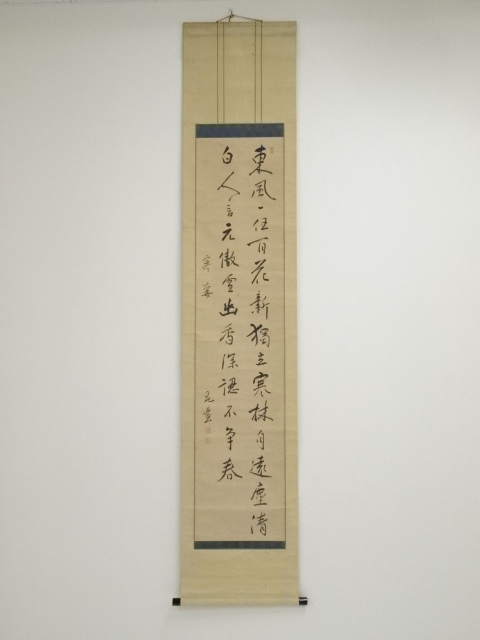 東風一任百花新獨立寒林自遠塵清
白人言元傲雪幽香深認不争春
寒梅